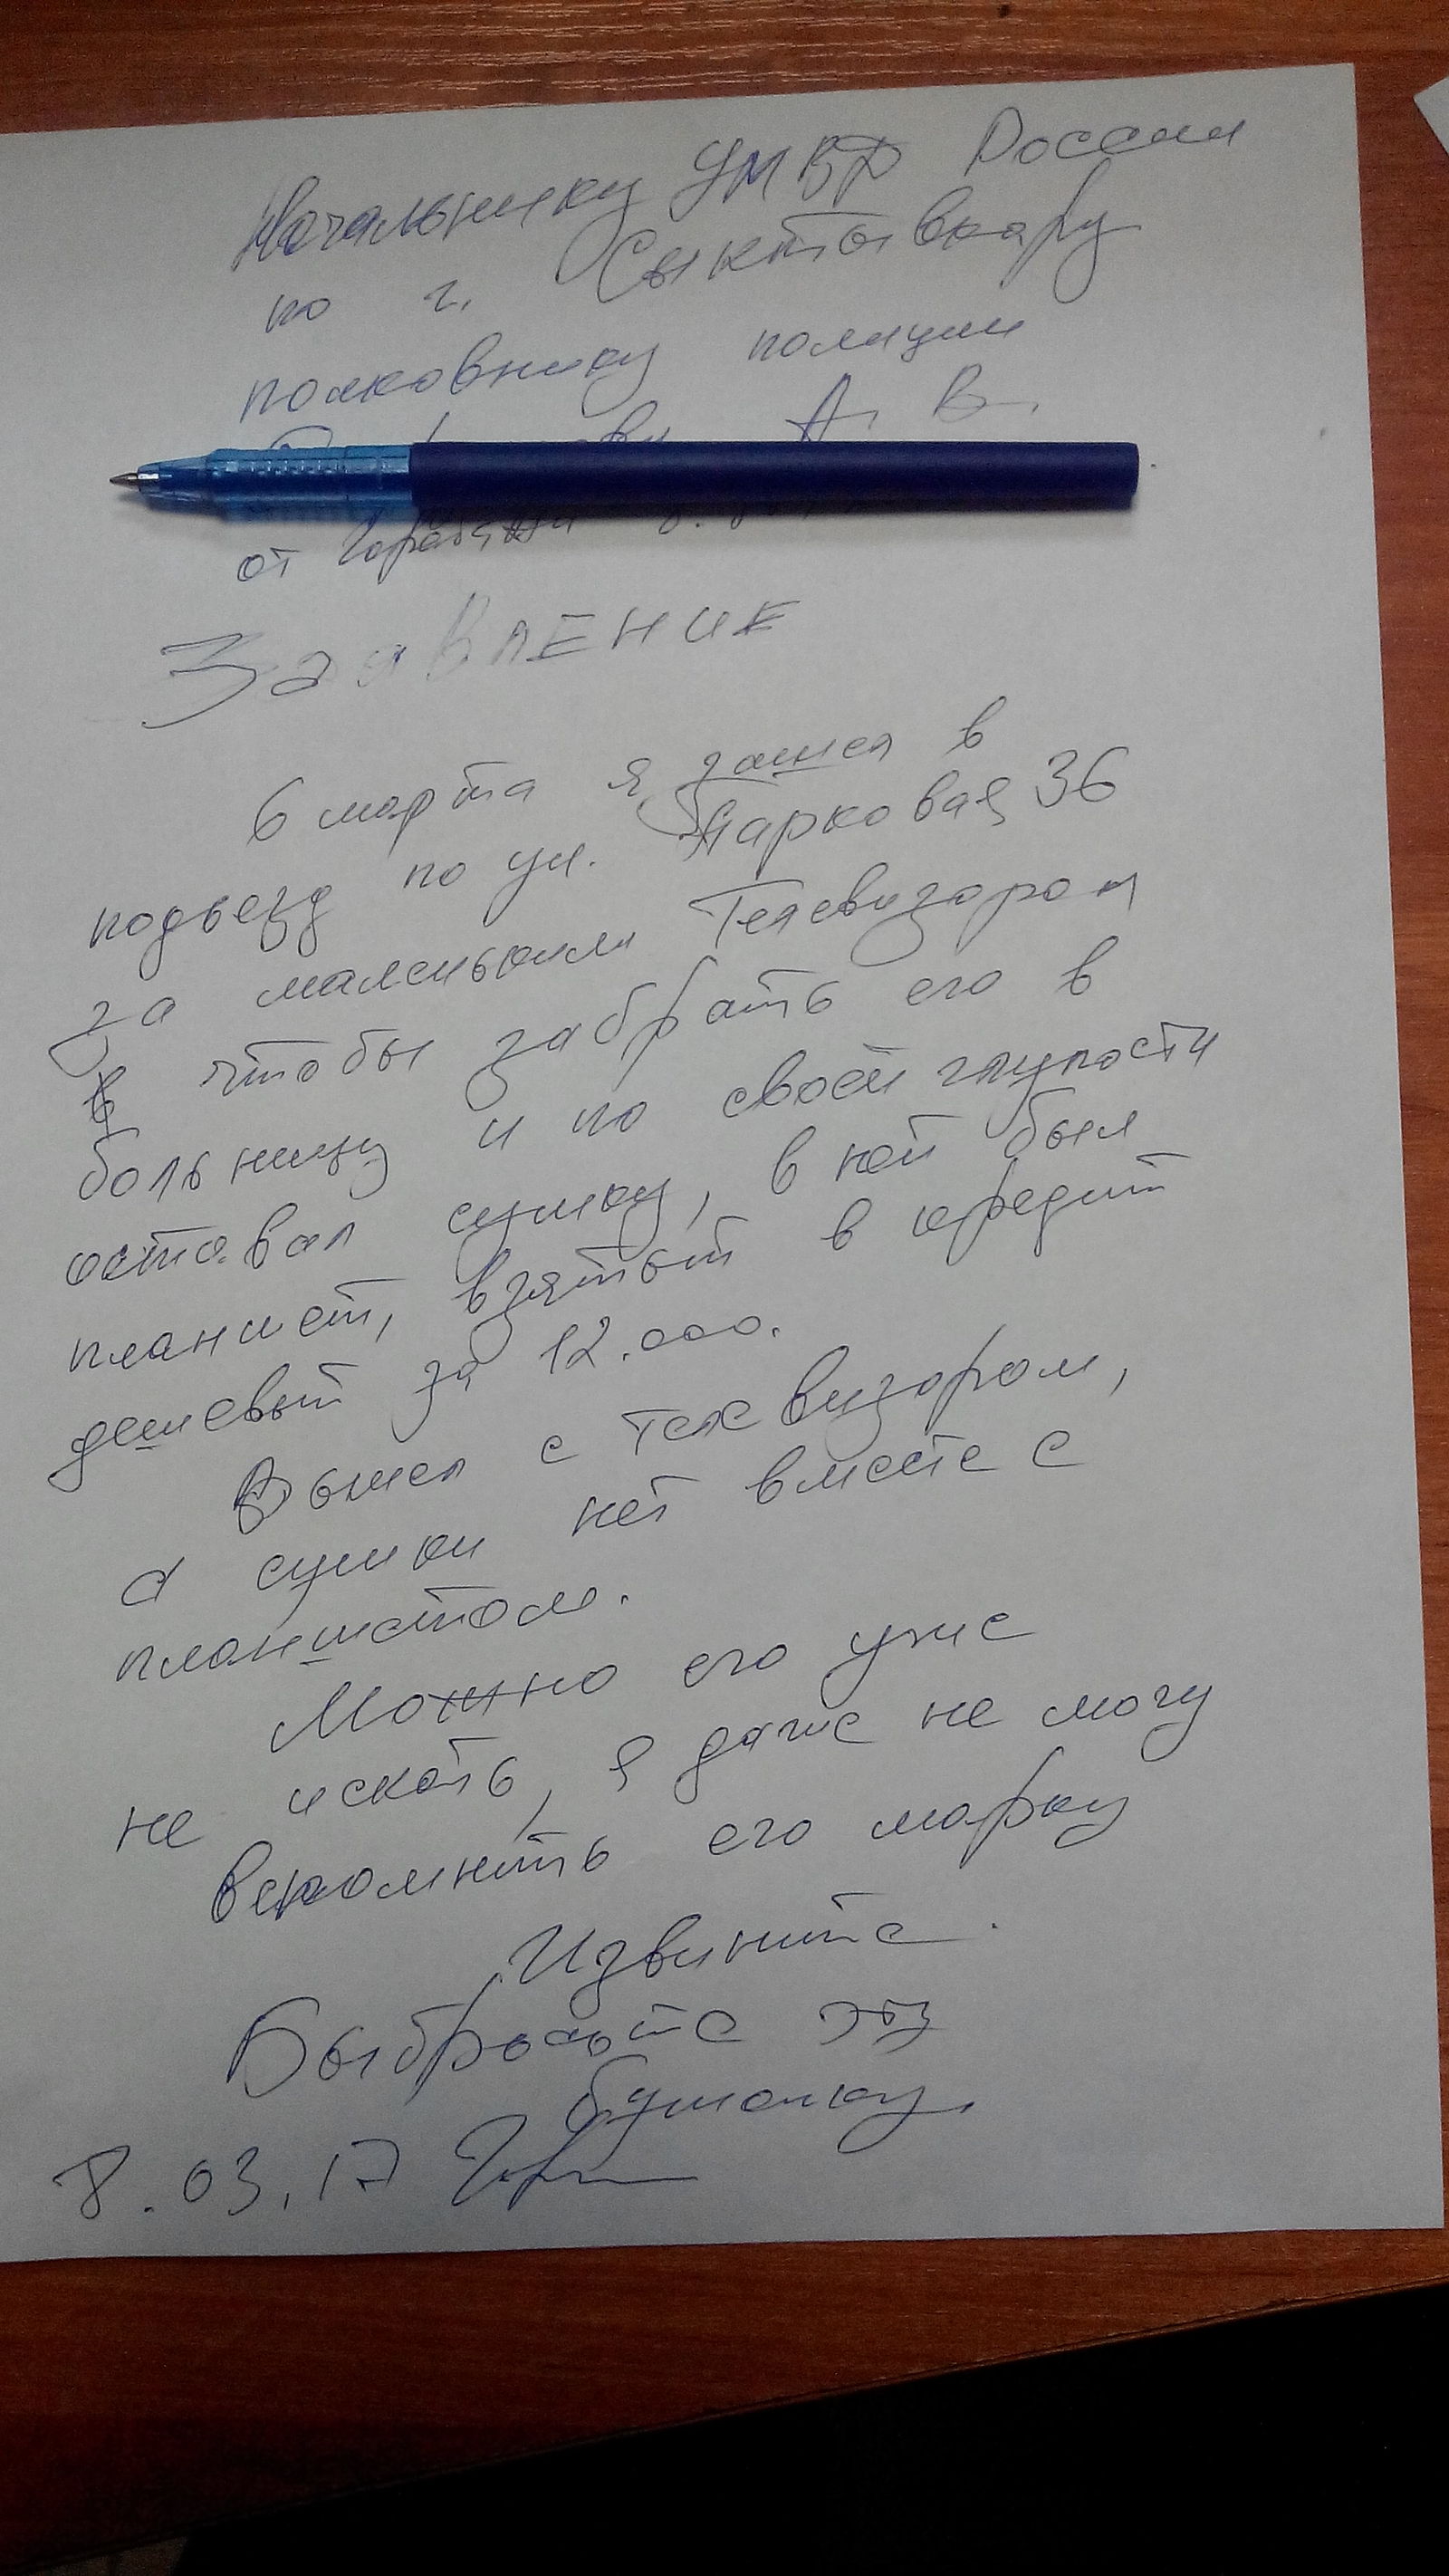 Начальнику УМВД России
по г. Сыктывкару
полковнику полиции
А. В.
от
Заявление
6 марта я зашел в
подъезд по ул. Парковая, 36
за маленьким телевизором
чтобы забрать его в
больницу и по своей глупости
оставил сумку, в ней был
планшет, взятый в кредит
дешевый за 12.000.
Вышел с телевизором,
а сумки нет вместе с
планшетом.
Можно его уже
не искать, я даже не могу
вспомнить его марку
Извините.
Выбросьте эту
бумажку.
8.03.17